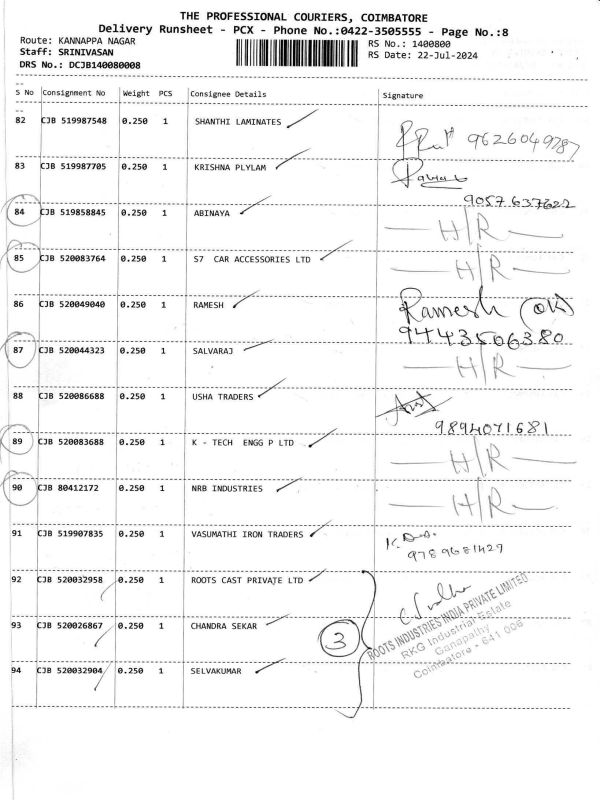 THE PROFESSIONAL COURIERS, COIMBATORE
Delivery Runsheet - PCX - Phone No.:0422-3505555 - Page No.:8
Route: KANNAPPA NAGAR RS No.: 1400800
Staff: SRINIVASAN RS Date: 22-Jul-2024
DRS No.: DCJB140080008
S No Consignment No Weight PCS Consignee Details Signature
82 CJB 519987548 0.250 1 SHANTHI LAMINATES
9626049787
83 CJB 519987705 0.250 1 KRISHNA PLYLAM
9057637622
84 CJB 519858845 0.250 1 ABINAYA H/R
85 CJB 520083764 0.250 1 S7 CAR ACCESSORIES LTD H/R
86 CJB 520049040 0.250 1 RAMESH Ramesh (OK)
9443506380
87 CJB 520044323 0.250 1 SALVARAJ H/R
88 CJB 520086688 0.250 1 USHA TRADERS
9894071681
89 CJB 520083688 0.250 1 K - TECH ENGG P LTD H/R
90 CJB 80412172 0.250 1 NRB INDUSTRIES H/R
91 CJB 519907835 0.250 1 VASUMATHI IRON TRADERS
9789681427
92 CJB 520032958 0.250 1 ROOTS CAST PRIVATE LTD
93 CJB 520026867 0.250 1 CHANDRA SEKAR 3
94 CJB 520032904 0.250 1 SELVAKUMAR
ROOTS INDUSTRIES INDIA PRIVATE LIMITED
RKG Industrial Estate
Ganapathy
Coimbatore - 641 006